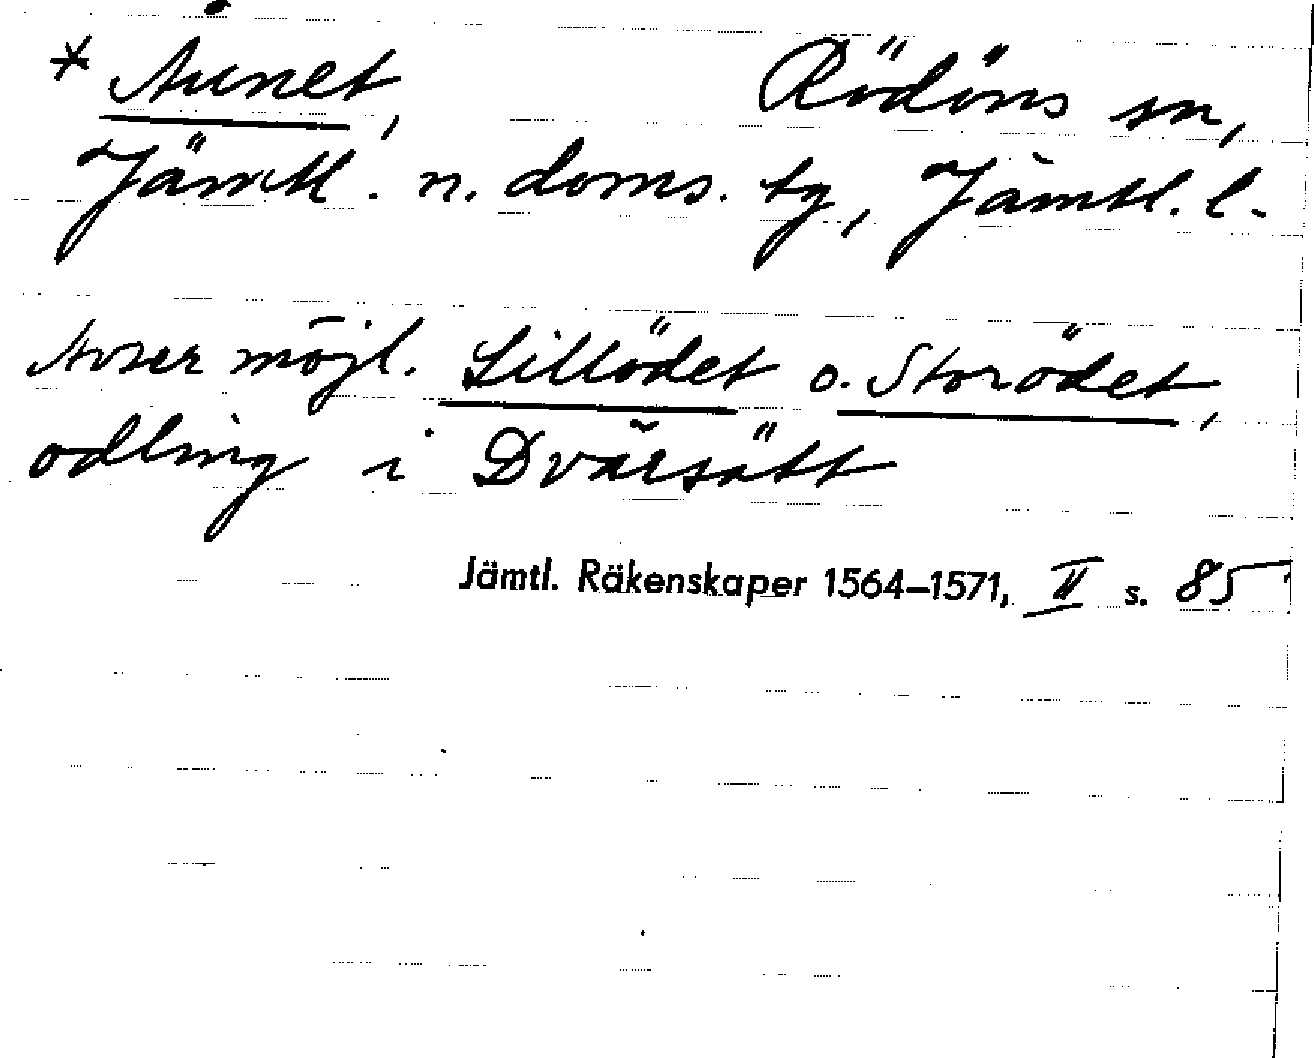 * Aunet, Rödöns sn,
Jämtl. n. doms. tg, Jämtl. l.
Avser möjl. Lillödet o. Storödet,
odling i Dvärsätt
Jämtl. Räkenskaper 1564–1571, II s. 85